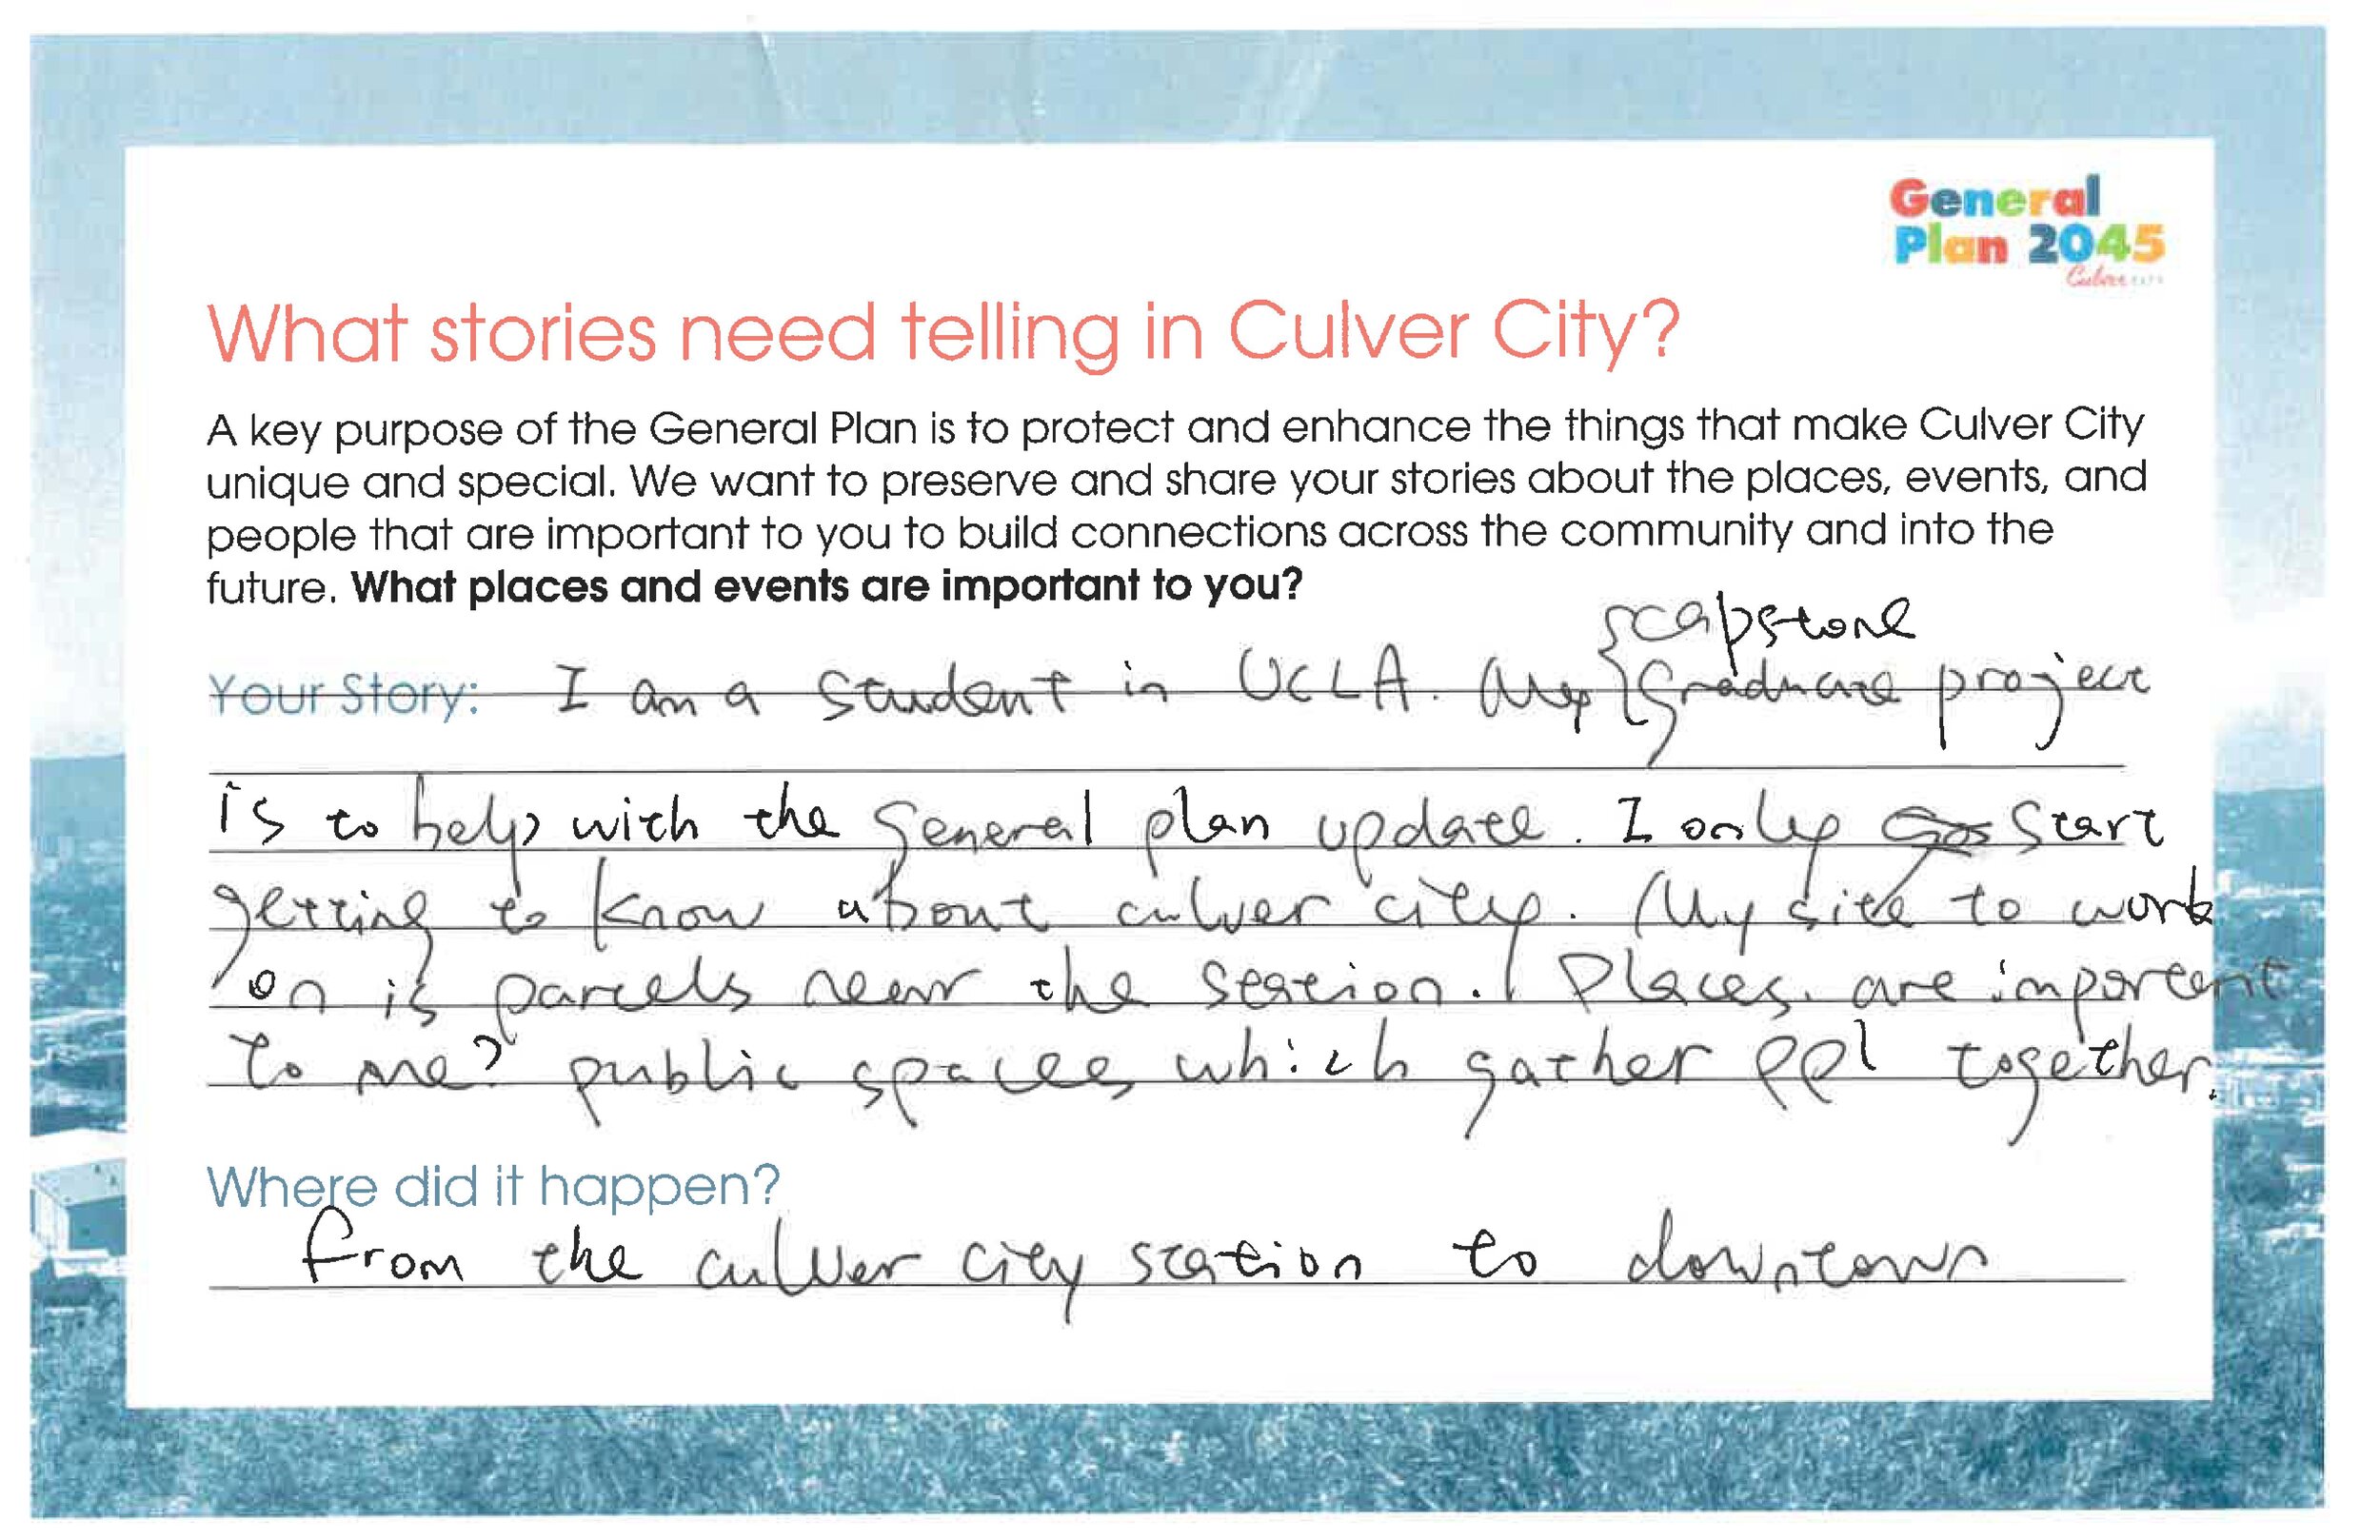 General
Plan 2045
Culver CITY
What stories need telling in Culver City?
A key purpose of the General Plan is to protect and enhance the things that make Culver City
unique and special. We want to preserve and share your stories about the places, events, and
people that are important to you to build connections across the community and into the
future. What places and events are important to you?
capstone
Your Story: I am a student in UCLA. My { graduate project
is to help with the general plan update. I only start
getting to know about culver city. (My site to work
on is parcels near the station.) Places are important
to me? public spaces which gather ppl together.
Where did it happen?
from the culver city station to downtown